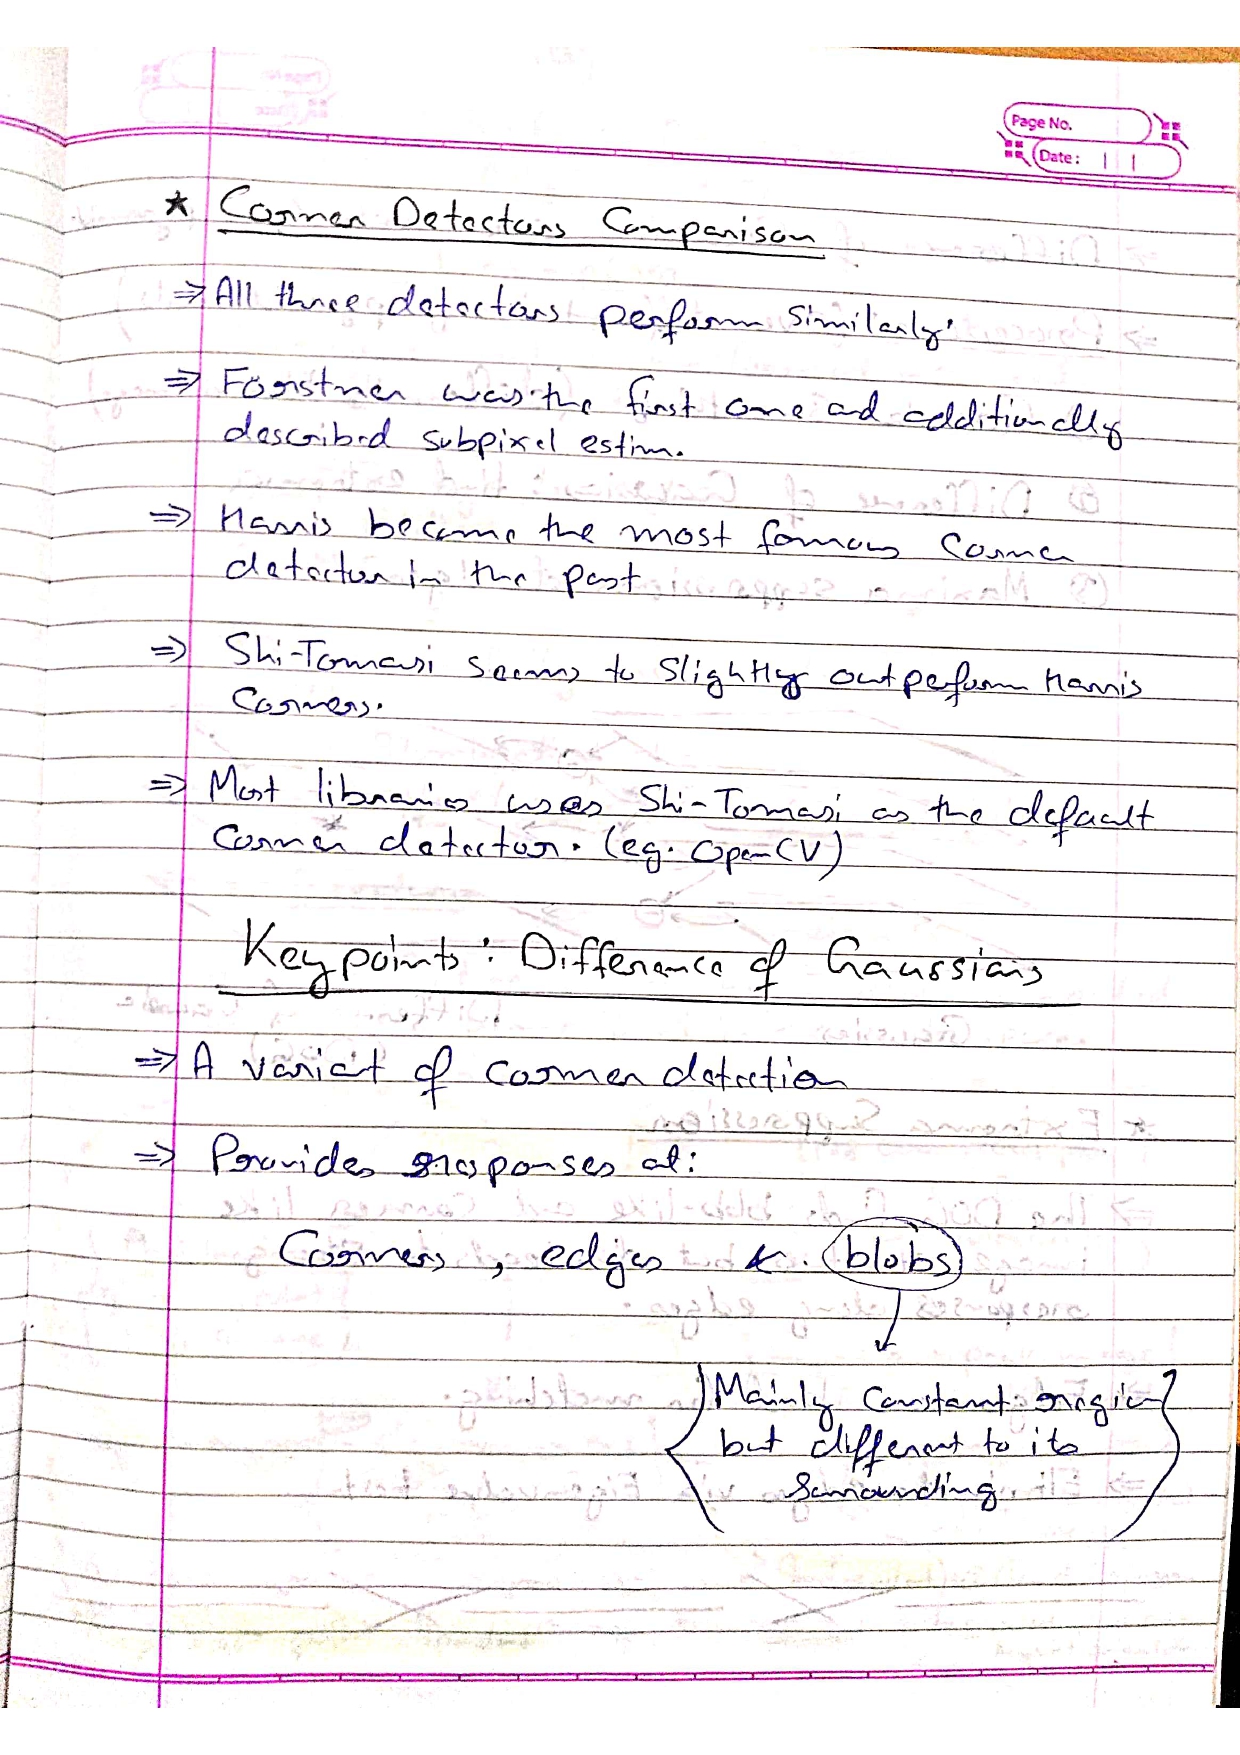 Page No.
Date: | |
* Corner Detectors Comparison
⇒ All three detectors perform similarly.
⇒ Förstner was the first one and additionally
described subpixel estim.
⇒ Harris became the most famous corner
detector in the past
⇒ Shi-Tomasi seems to slightly outperform Harris
Corners.
⇒ Most libraries uses Shi-Tomasi as the default
corner detector. (eg. OpenCV)
Keypoints: Difference of Gaussians
⇒ A variant of corner detection
⇒ Provides responses at:
Corners, edges & blobs
Mainly constant region
but different to its
surrounding.